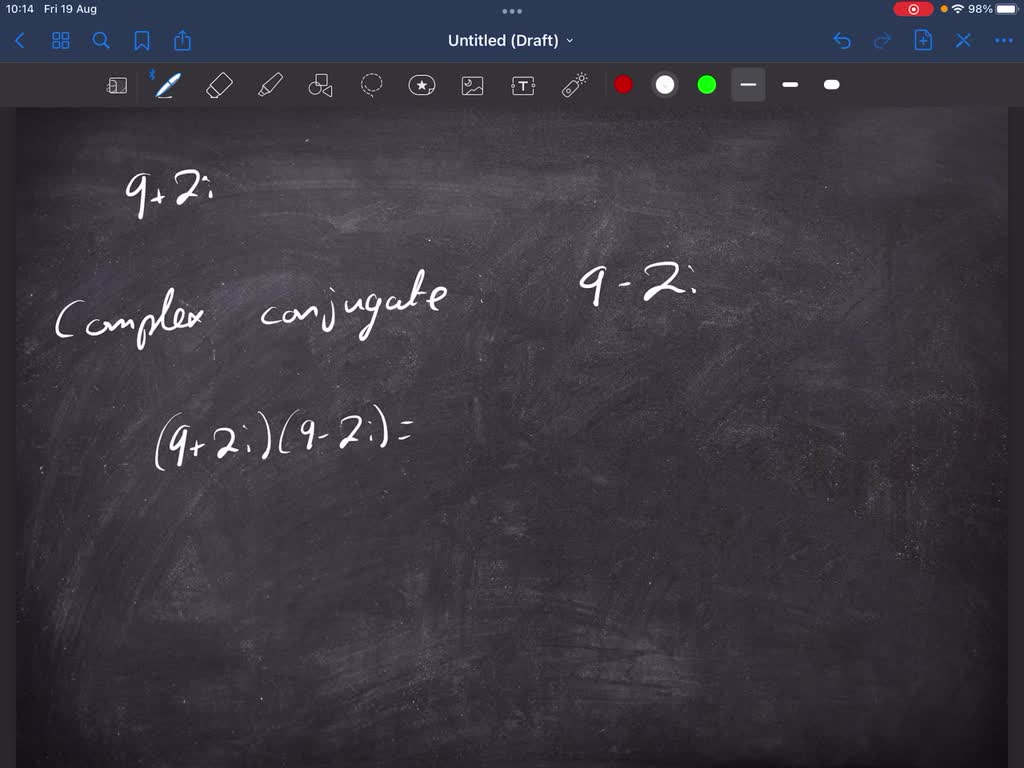 10:14 Fri 19 Aug 98%
Untitled (Draft)
T
9+2i
Complex conjugate 9-2i
(9+2i)(9-2i)=